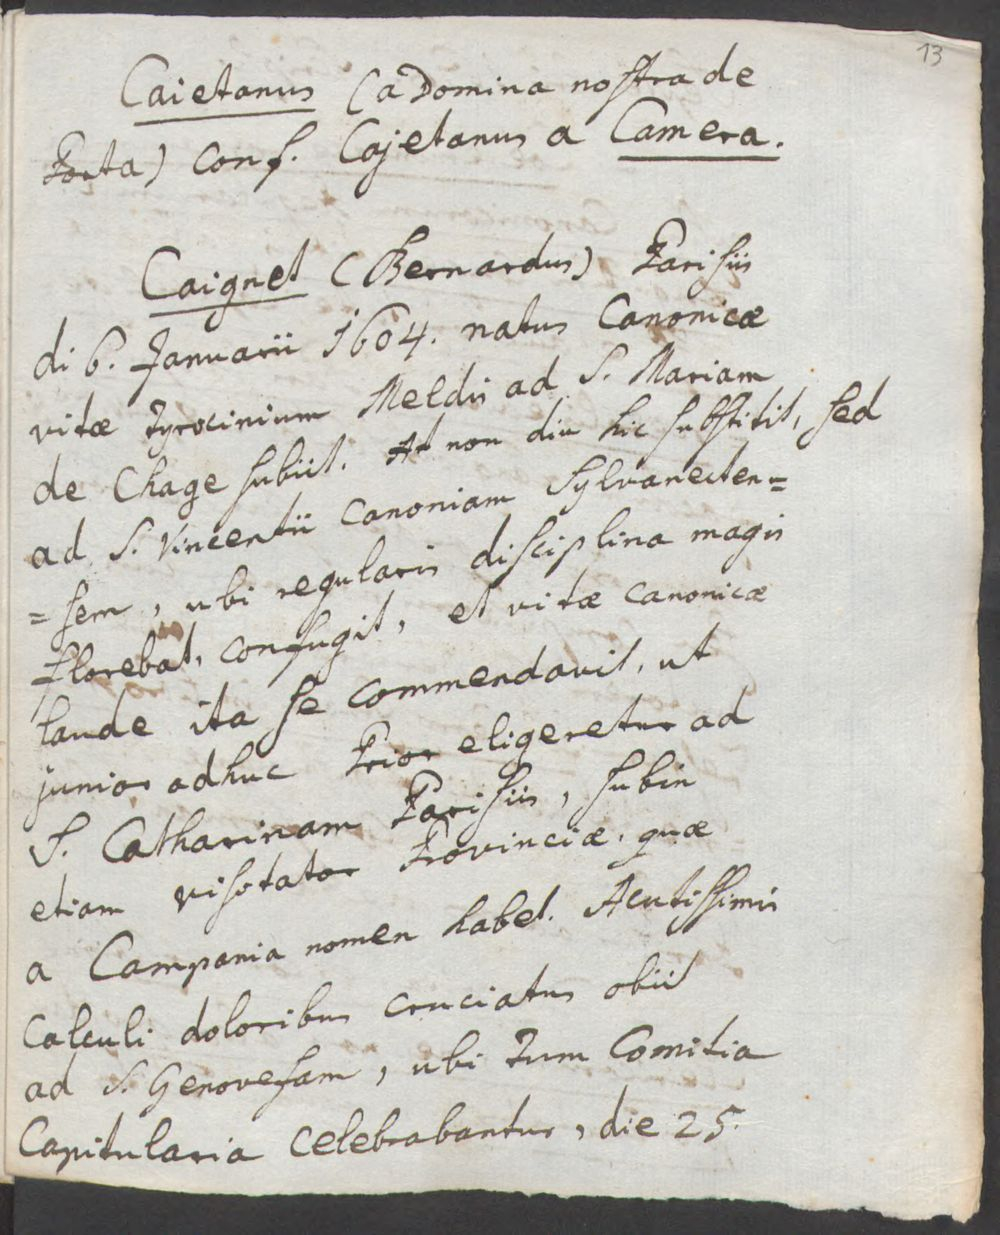 13
Caietanus (a Domina nostra de
Porta) conf. Cajetanus a Camera.
Caignet (Bernardus) Parisiis
di 6. Januarii 1604. natus Canonicæ
vitæ Tyrocinium Meldis ad S. Mariam
de Chage subiit. At non diu hic substitit, sed
ad S. Vincentii Canoniam Sylvanecten=
=sem, ubi regularis disciplina magis
florebat, confugit, et vitæ canonicæ
laude ita se commendavit, ut
junior adhuc Prior eligeretur ad
S. Catharinam Parisiis, subin
etiam visitator Provinciæ, quæ
a Campania nomen habet. Acutissimis
Calculi doloribus cruciatus obiit
ad S. Genovefam, ubi tum Comitia
Capitularia celebrabantur, die 25.